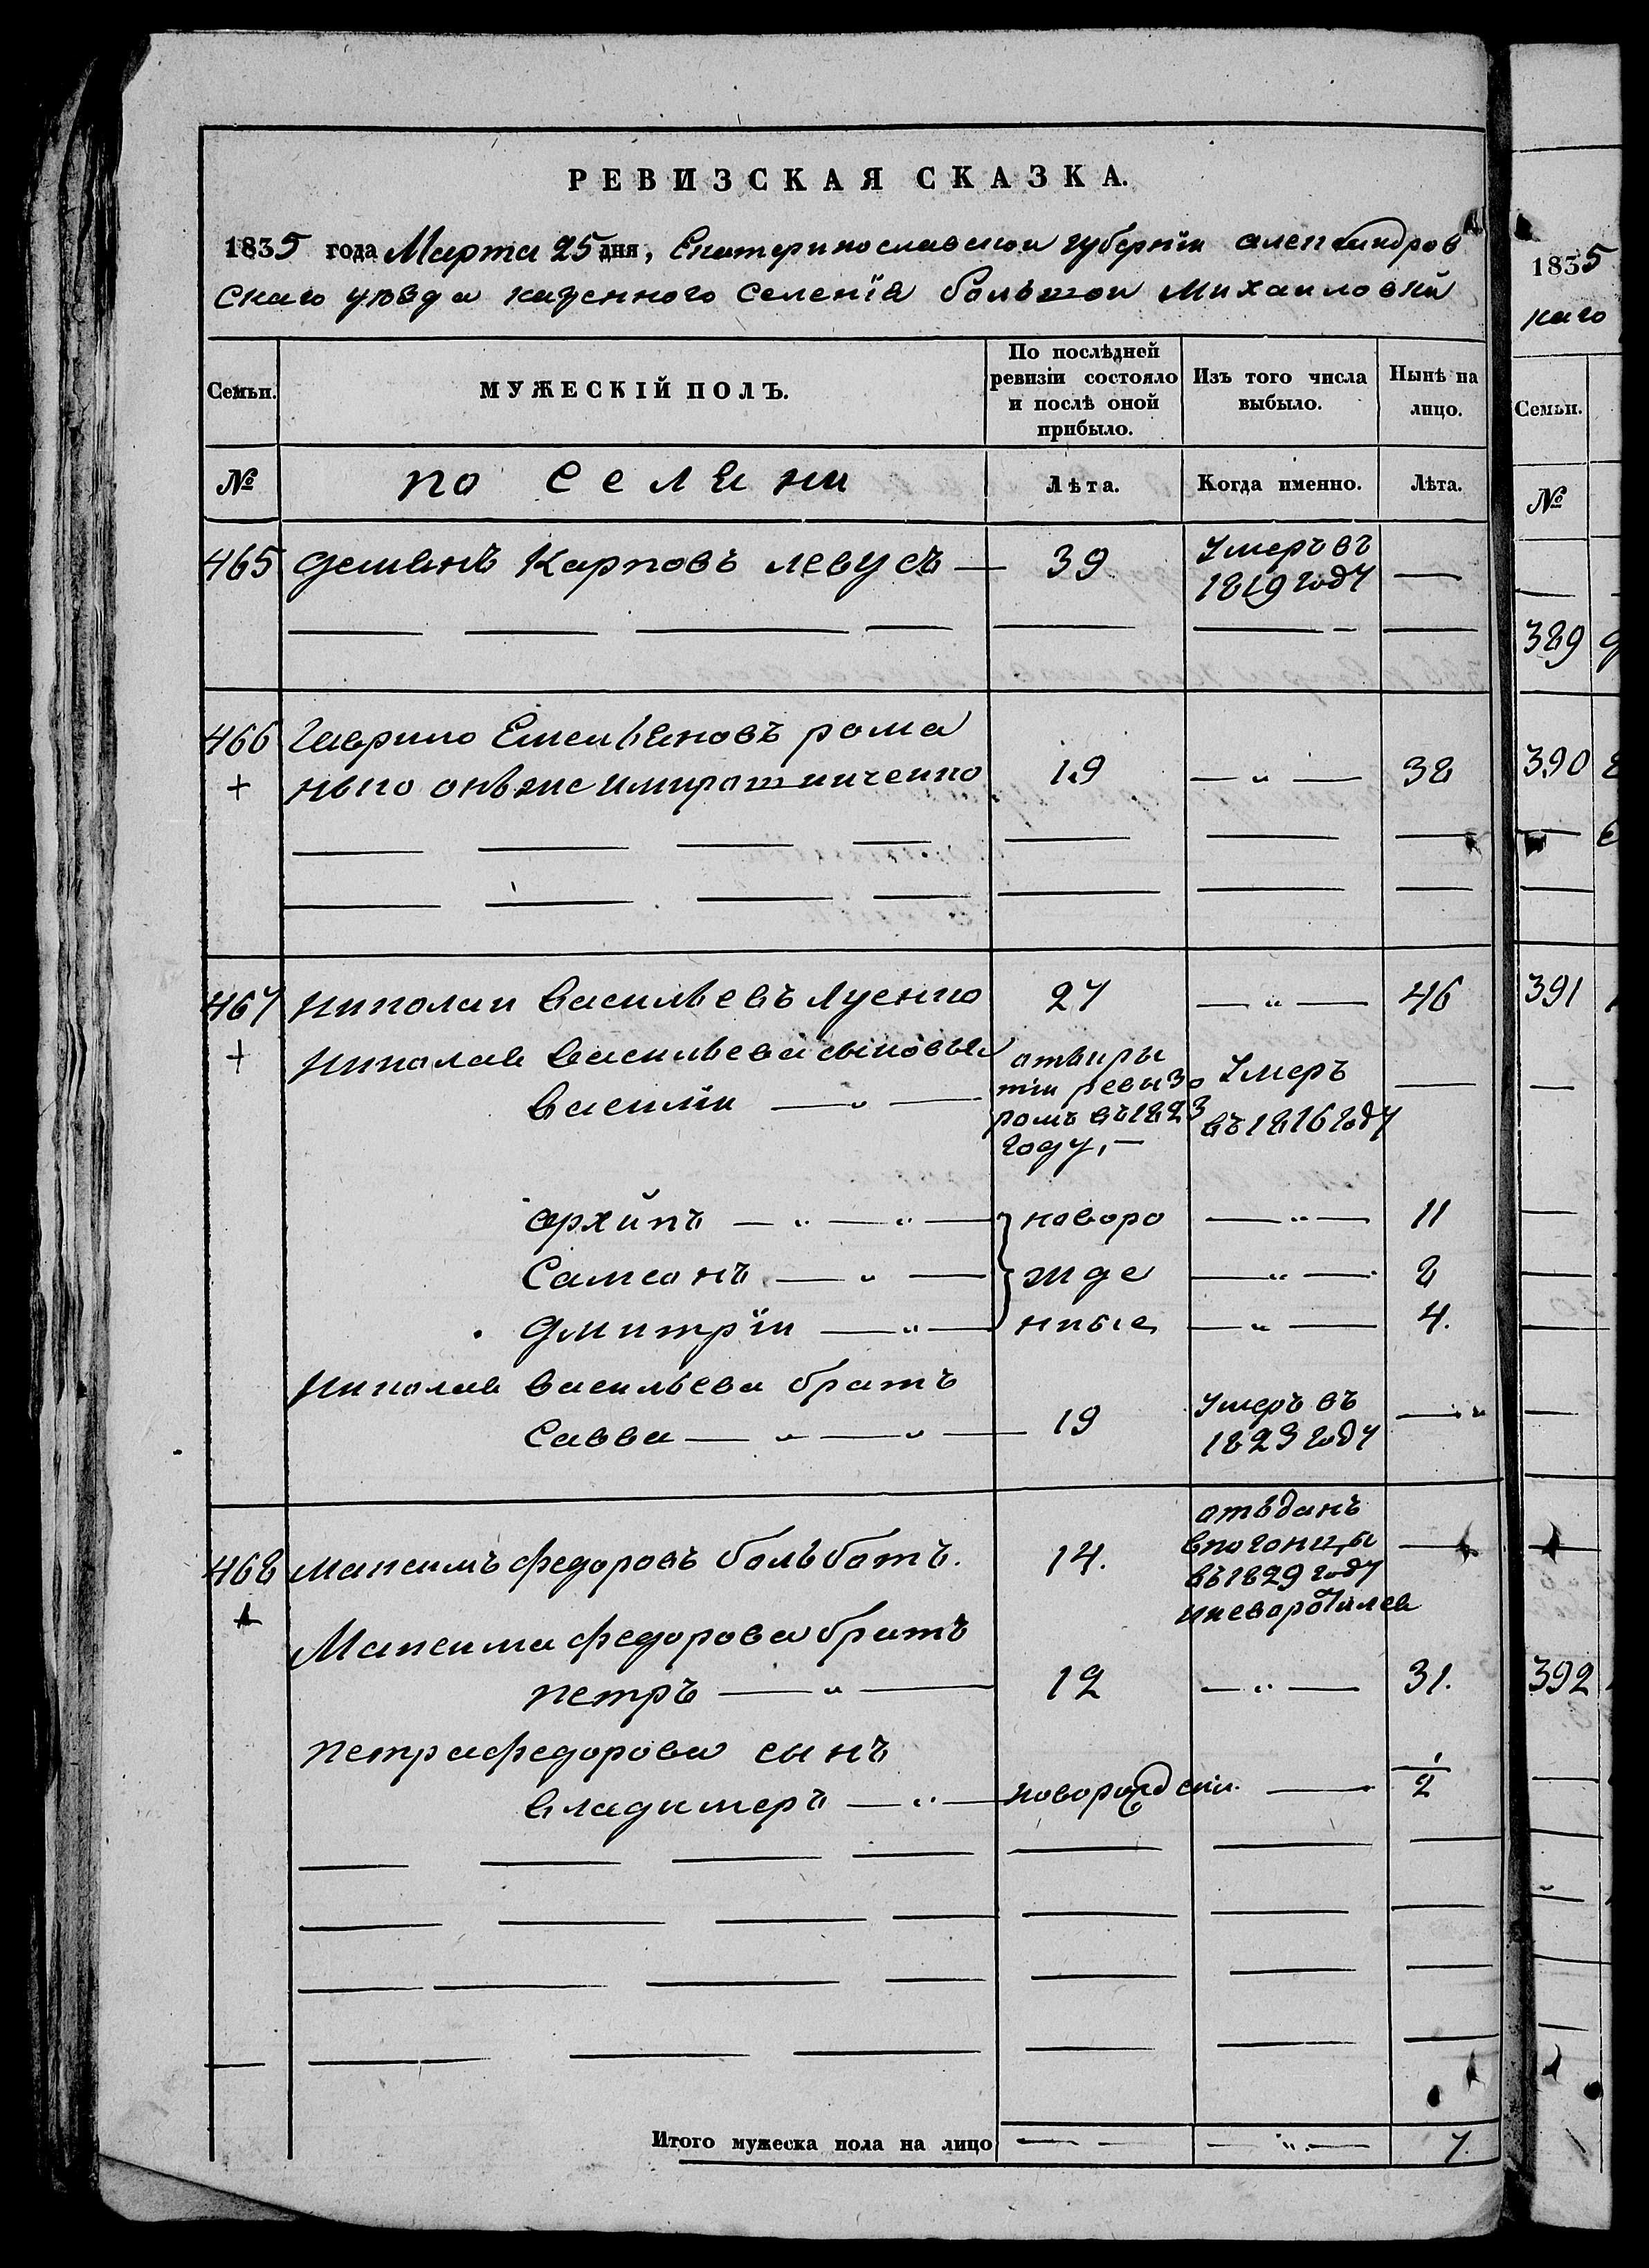 РЕВИЗСКАЯ СКАЗКА.
1835 года Марта 25 дня, Екатеринославской губернїи александров
скаго уѣзда казенного Селенїя большой Михайловки
Семьи. МУЖЕСКІЙ ПОЛЪ. По послѣдней ревизіи состояло и послѣ оной прибыло. Изъ того числа выбыло. Нынѣ на лицо.
№ поселяни Лѣта. Когда именно. Лѣта.
465 Демьянъ Карповъ левусъ — 39 Умеръ въ 1819 году —
466 Гаврило Емельяновъ рома
ныко онъже 19 — " — 38
467 Николаи Васильевъ Луенко 27 — " — 46
Николая Васильева сыновья
Василїи — " — откры
тїи ревизо
ромъ въ 1823
году, — Умеръ
въ 1816 году —
архипъ — " — " — новоро — " — 11
Самсонъ — " — жде — " — 8
Дмитрїи — " — нные — " — 4.
Николая Васильева братъ
Савва — " — " — 19 Умеръ въ
1823 году — "
468 Максимъ федоровъ больботъ. 14. отъданъ
впогонцы
въ 1829 году
иневоротился —
Максима федорова братъ
петръ — " — 12 — " — 31.
петра федорова сынъ
владимеръ — " — новорожден. — 1/2
Итого мужеска пола на лицо — — — " — 7
1835
каго
Семьи.
№
389
390
391
392